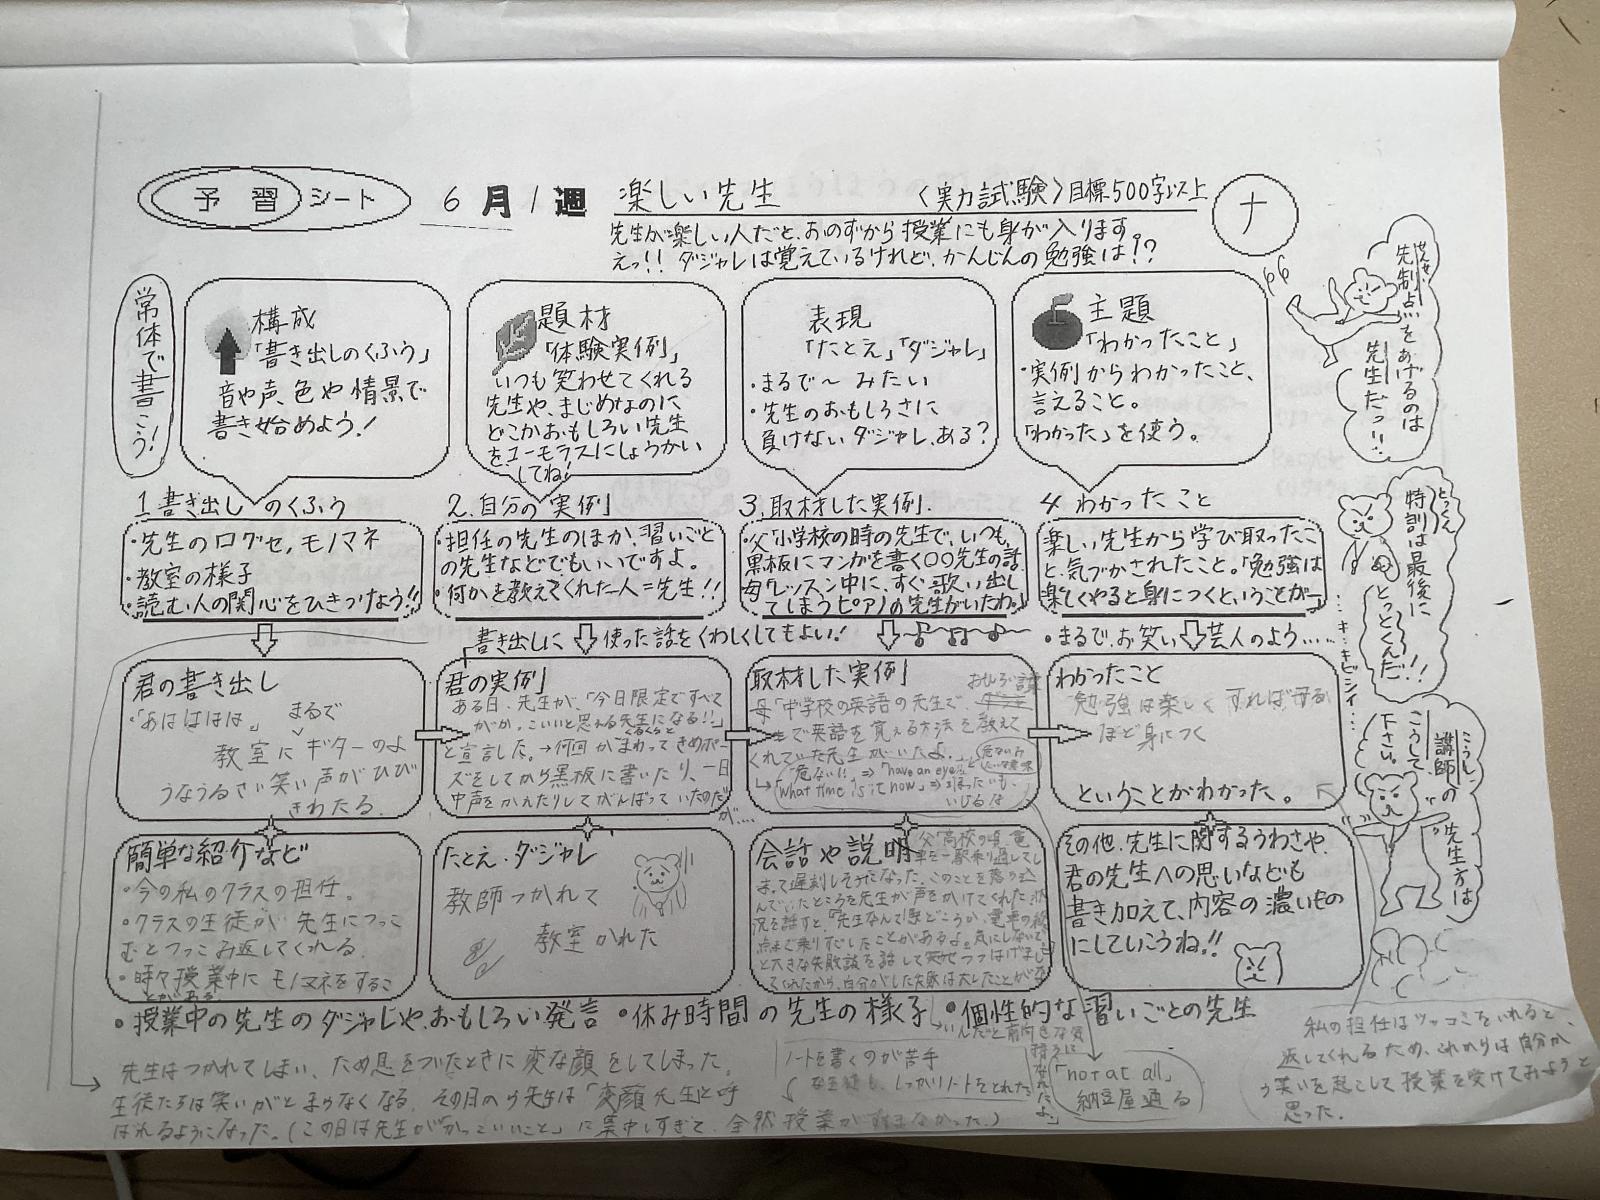 予習シート
6月1週 楽しい先生 〈実力試験〉目標500字以上
ナ
先生が楽しい人だと、おのずから授業にも身が入ります。
えっ!! ダジャレは覚えているけれど、かんじんの勉強は!?
常体で書こう!
構成
「書き出しのくふう」
音や声、色や情景で
書き始めよう!
題材
「体験実例」
いつも笑わせてくれる
先生や、まじめなのに
どこかおもしろい先生
をユーモラスにしょうかい
してね!
表現
「たとえ」「ダジャレ」
・まるで〜みたい
・先生のおもしろさに
負けないダジャレ、ある?
主題
「わかったこと」
・実例からわかったこと、
言えること。
「わかった」を使う。
せんせい
先制点をあげるのは
先生だっ!!
1.書き出しのくふう
・先生の口グセ、モノマネ
・教室の様子
・読む人の関心をひきつけよう!!
2.自分の実例
・担任の先生のほか、習いごと
の先生などでもいいですよ。
・何かを教えてくれた人=先生!!
3.取材した実例
・父「小学校の時の先生で、いつも
黒板にマンガを書く〇〇先生の話
母「レッスン中に、すぐ歌い出し
てしまうピアノの先生がいたわ。」
4.わかったこと
楽しい先生から学び取ったこ
と、気づかされたこと。「勉強は
楽しくやると身につくということが…
とっくん
特訓は最後に
とっとくんだ!!
…キ…キビシイ…
書き出しに使った話をくわしくしてもよい!
・まるで、お笑い芸人のよう……
君の書き出し
・「あはははは。」まるで
教室にギターのよ
うなうるさい笑い声がひび
きわたる。
君の実例
ある日、先生が、「今日限定ですべて
がかっこいいと思える先生になる!!」
と宣言した。→何回かまわってきめポー
ズをしてから黒板に書いたり、一日
中声をかえたりしてがんばっていたのだ
が…
取材した実例
母「中学校の英語の先生で、
で英語を覚える方法を教えて
くれていた先生がいたよ。」
「危ない!!」⇒「have an eye」
「What time is it now」⇒掘ったいも、
いじるな
わかったこと
勉強は楽しくすればする
ほど身につく
ということがわかった。
こうし
講師の先生方は
こうして
下さい。
簡単な紹介など
・今の私のクラスの担任。
・クラスの生徒が先生につっこ
むとつっこみ返してくれる。
・時々授業中にモノマネをするこ
とがある
たとえ・ダジャレ
教師つかれて
教室かれた
会話や説明
父「高校の頃、電
車を一駅乗り過してし
まって遅刻しそうになった。このことを落ち込
んでいたところを先生が声をかけてくれた。状
況を話すと、「先生なんて1駅どころか、電車の終
点まで乗りすごしたことがあるよ。気にしないで」
と大きな失敗談を話して
くれたから、自分がした失敗は大したことが
いんだと前向きな気
持ちに
なれたよ。」
その他、先生に関するうわさや、
君の先生への思いなども
書き加えて、内容の濃いもの
にしていこうね!!
・授業中の先生のダジャレや、おもしろい発言 ・休み時間の先生の様子 ・個性的な習いごとの先生
先生はつかれてしまい、ため息をついたときに変な顔をしてしまった。
生徒たちは笑いがとまらなくなる。その日から先生は「変顔先生」と呼
ばれるようになった。(この日は先生が「かっこいいこと」に集中しすぎて、全然授業が進まなかった。)
ノートを書くのが苦手
しっかりノートをとれた
「not at all」
納豆屋通る
私の担任はツッコミをいれると、
返してくれるため、これからは自分か
ら笑いを起こして授業を受けてみようと
思った。